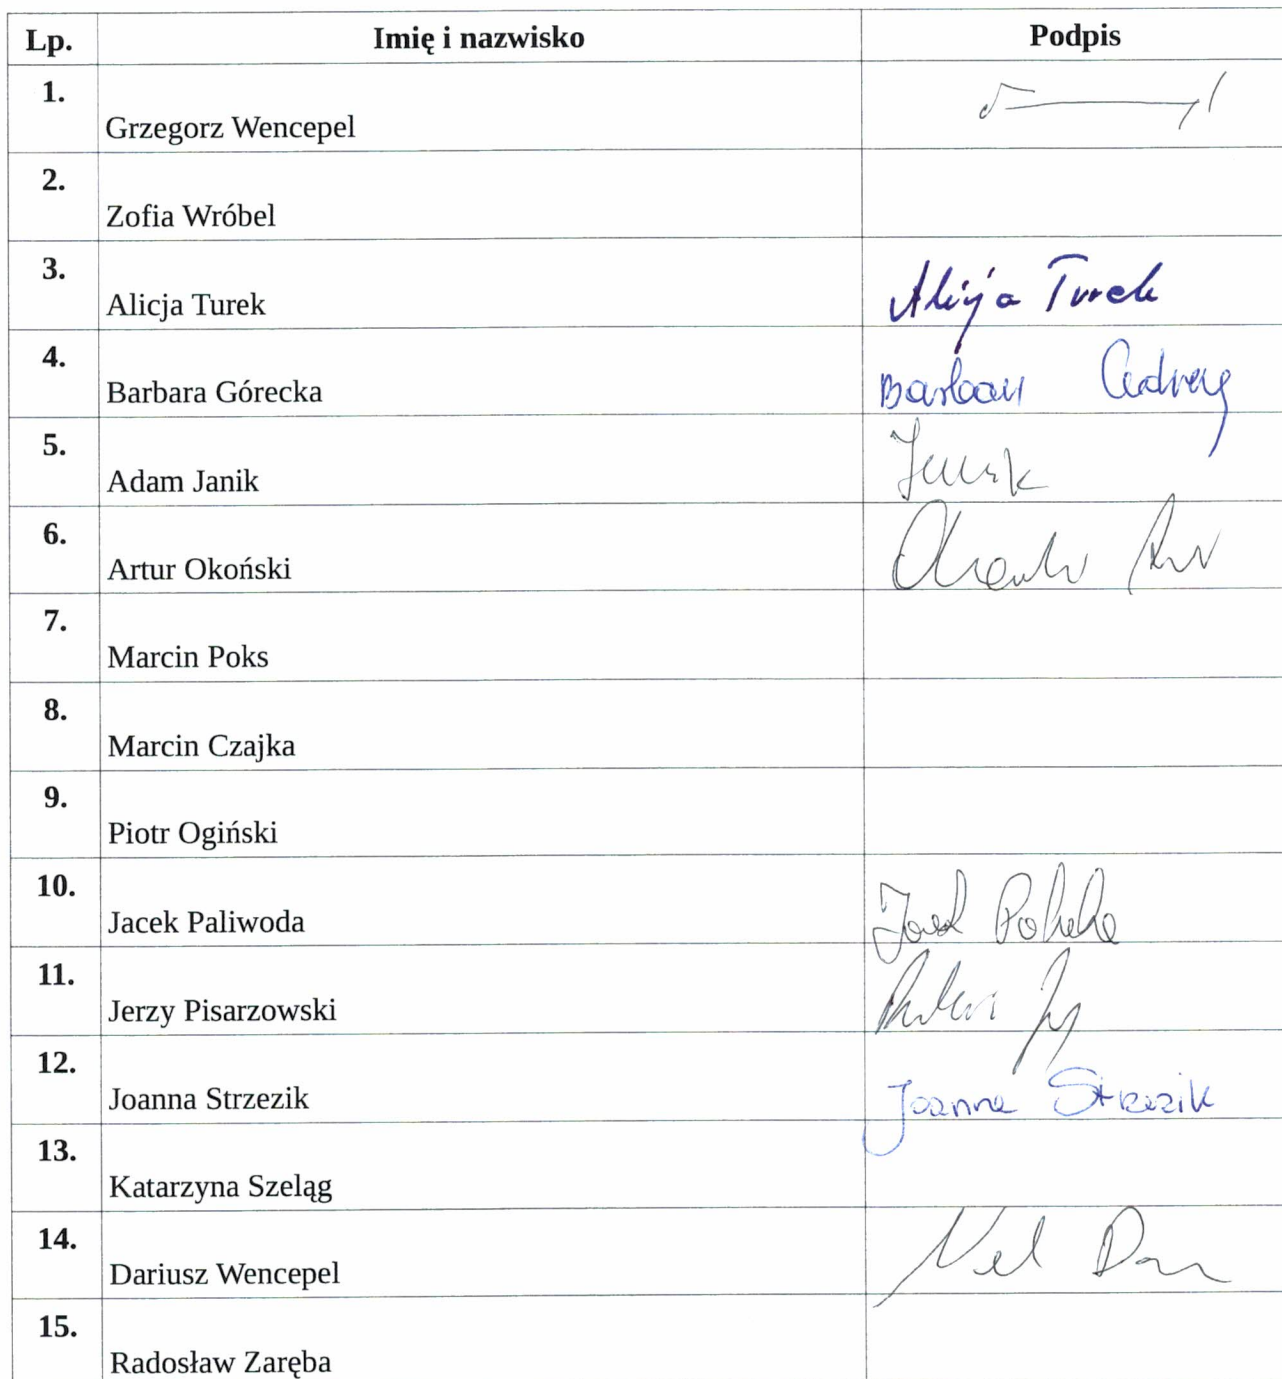 Lp. Imię i nazwisko Podpis
1. Grzegorz Wencepel
2. Zofia Wróbel
3. Alicja Turek Alicja Turek
4. Barbara Górecka
5. Adam Janik Janik
6. Artur Okoński
7. Marcin Poks
8. Marcin Czajka
9. Piotr Ogiński
10. Jacek Paliwoda Jacek
11. Jerzy Pisarzowski
12. Joanna Strzezik Joanna Strzezik
13. Katarzyna Szeląg
14. Dariusz Wencepel
15. Radosław Zaręba